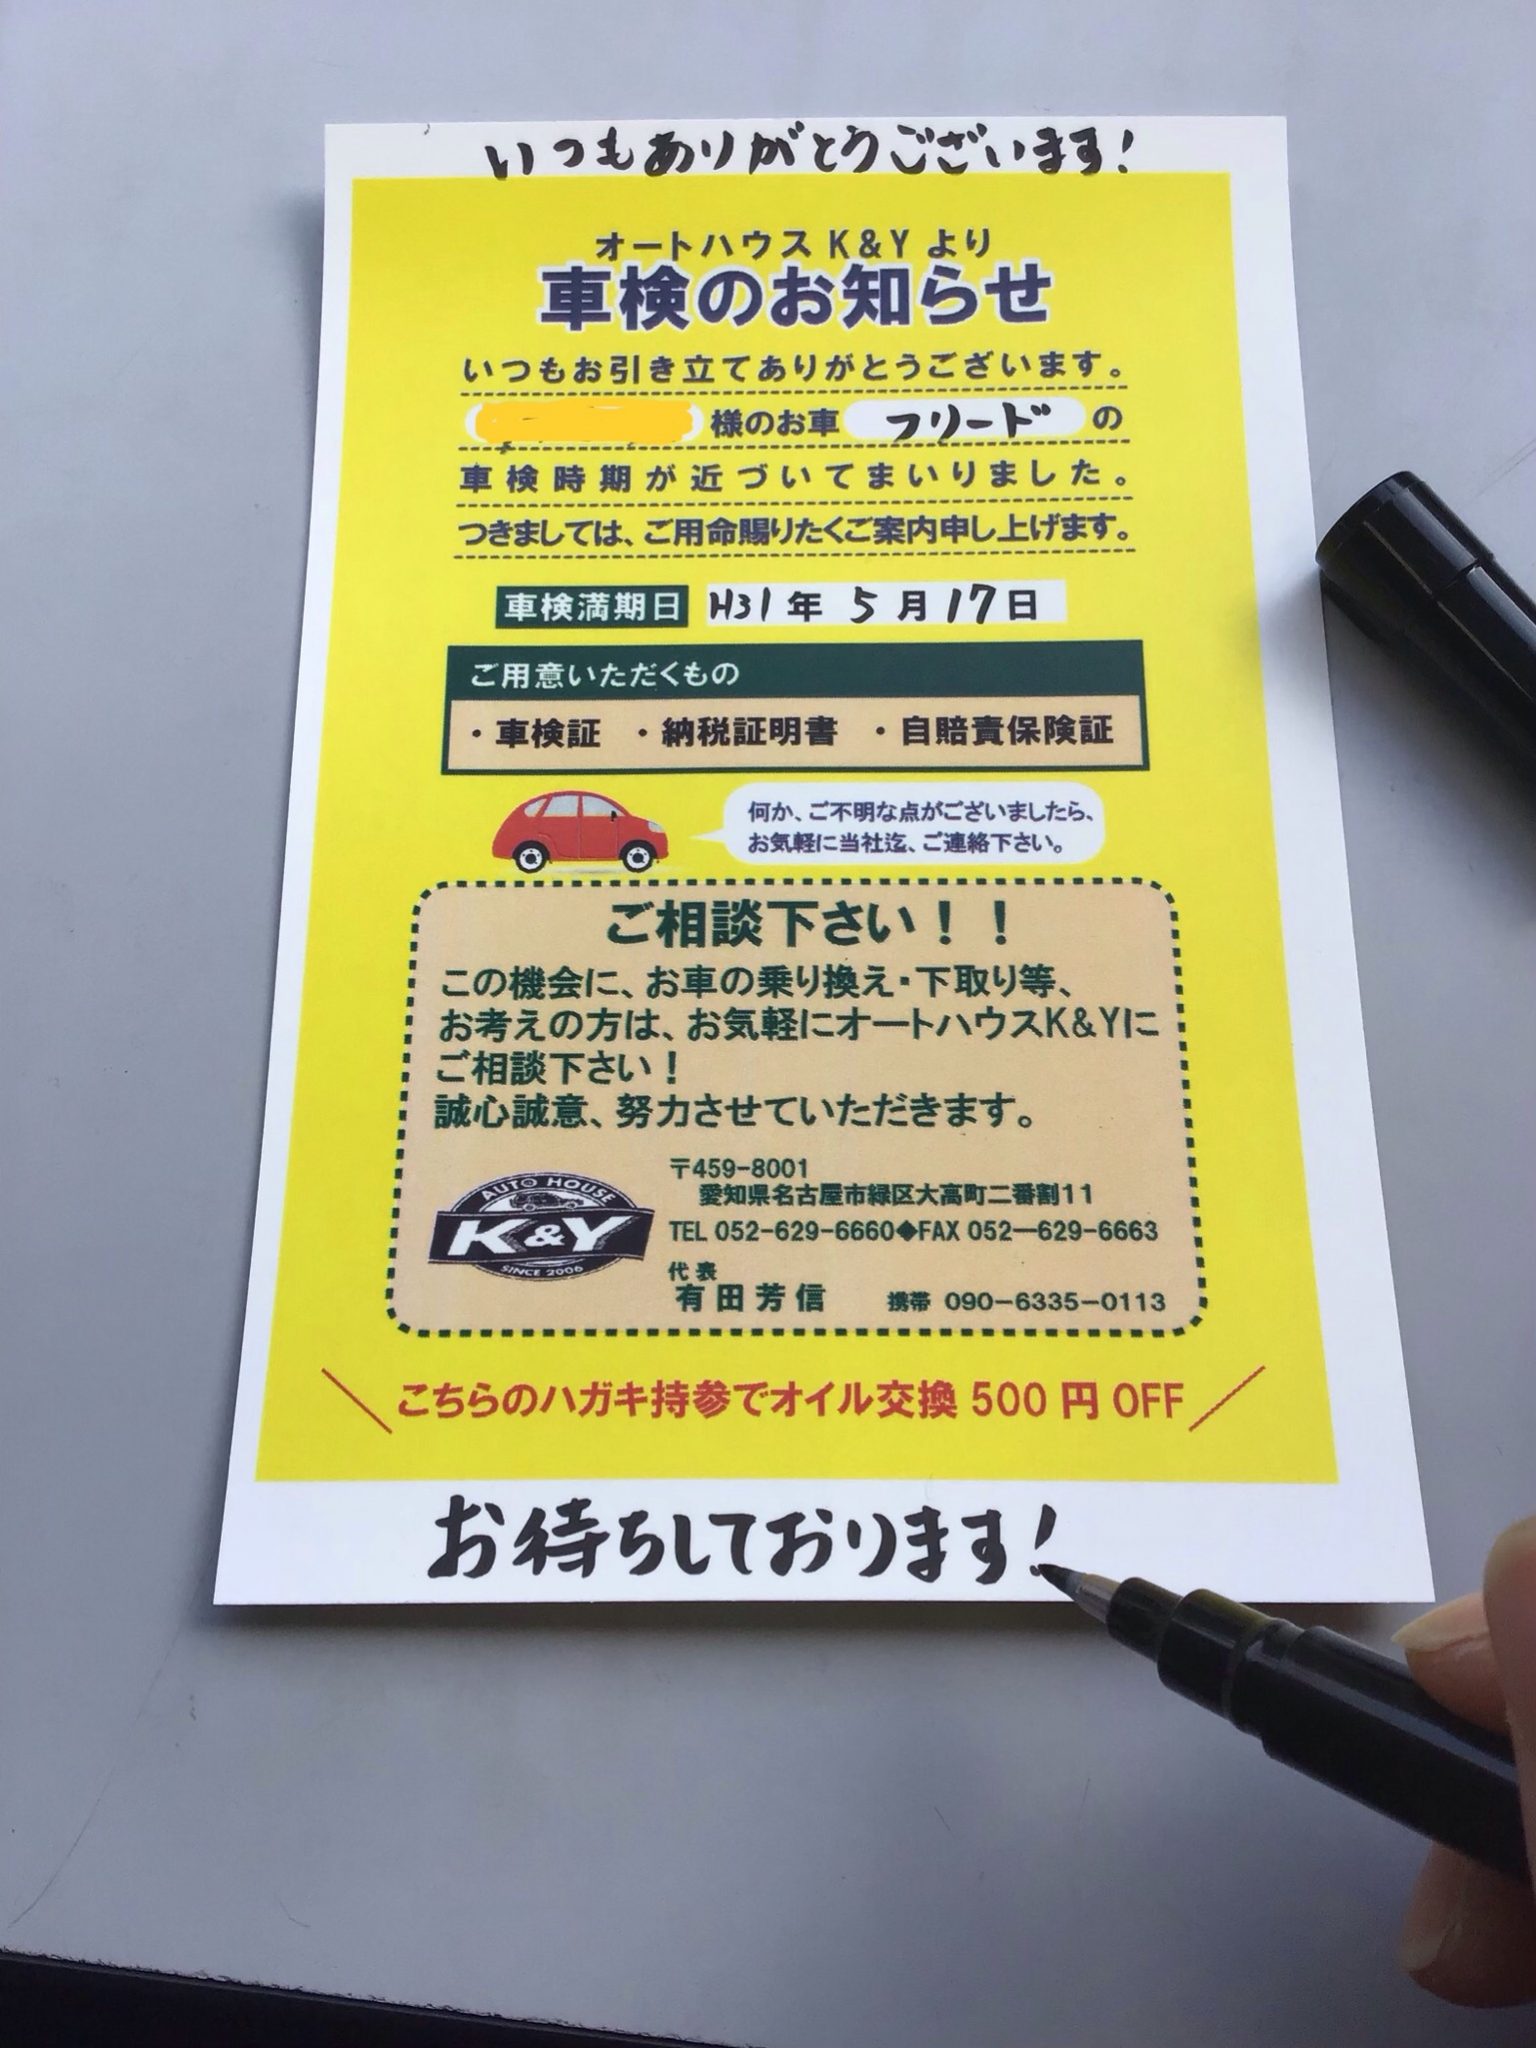 いつもありがとうございます!
オートハウス K&Y より
車検のお知らせ
いつもお引き立てありがとうございます。
様のお車 フリード の
車検時期が近づいてまいりました。
つきましては、ご用命賜りたくご案内申し上げます。
車検満期日 H31年 5月17日
ご用意いただくもの
・車検証 ・納税証明書 ・自賠責保険証
何か、ご不明な点がございましたら、
お気軽に当社迄、ご連絡下さい。
ご相談下さい！！
この機会に、お車の乗り換え・下取り等、
お考えの方は、お気軽にオートハウスK&Yに
ご相談下さい！
誠心誠意、努力させていただきます。
AUTO HOUSE
K&Y
SINCE 2006
〒459-8001
愛知県名古屋市緑区大高町二番割11
TEL 052-629-6660◆FAX 052―629-6663
代表
有田芳信 携帯 090−6335−0113
＼こちらのハガキ持参でオイル交換 500 円 OFF／
お待ちしております!